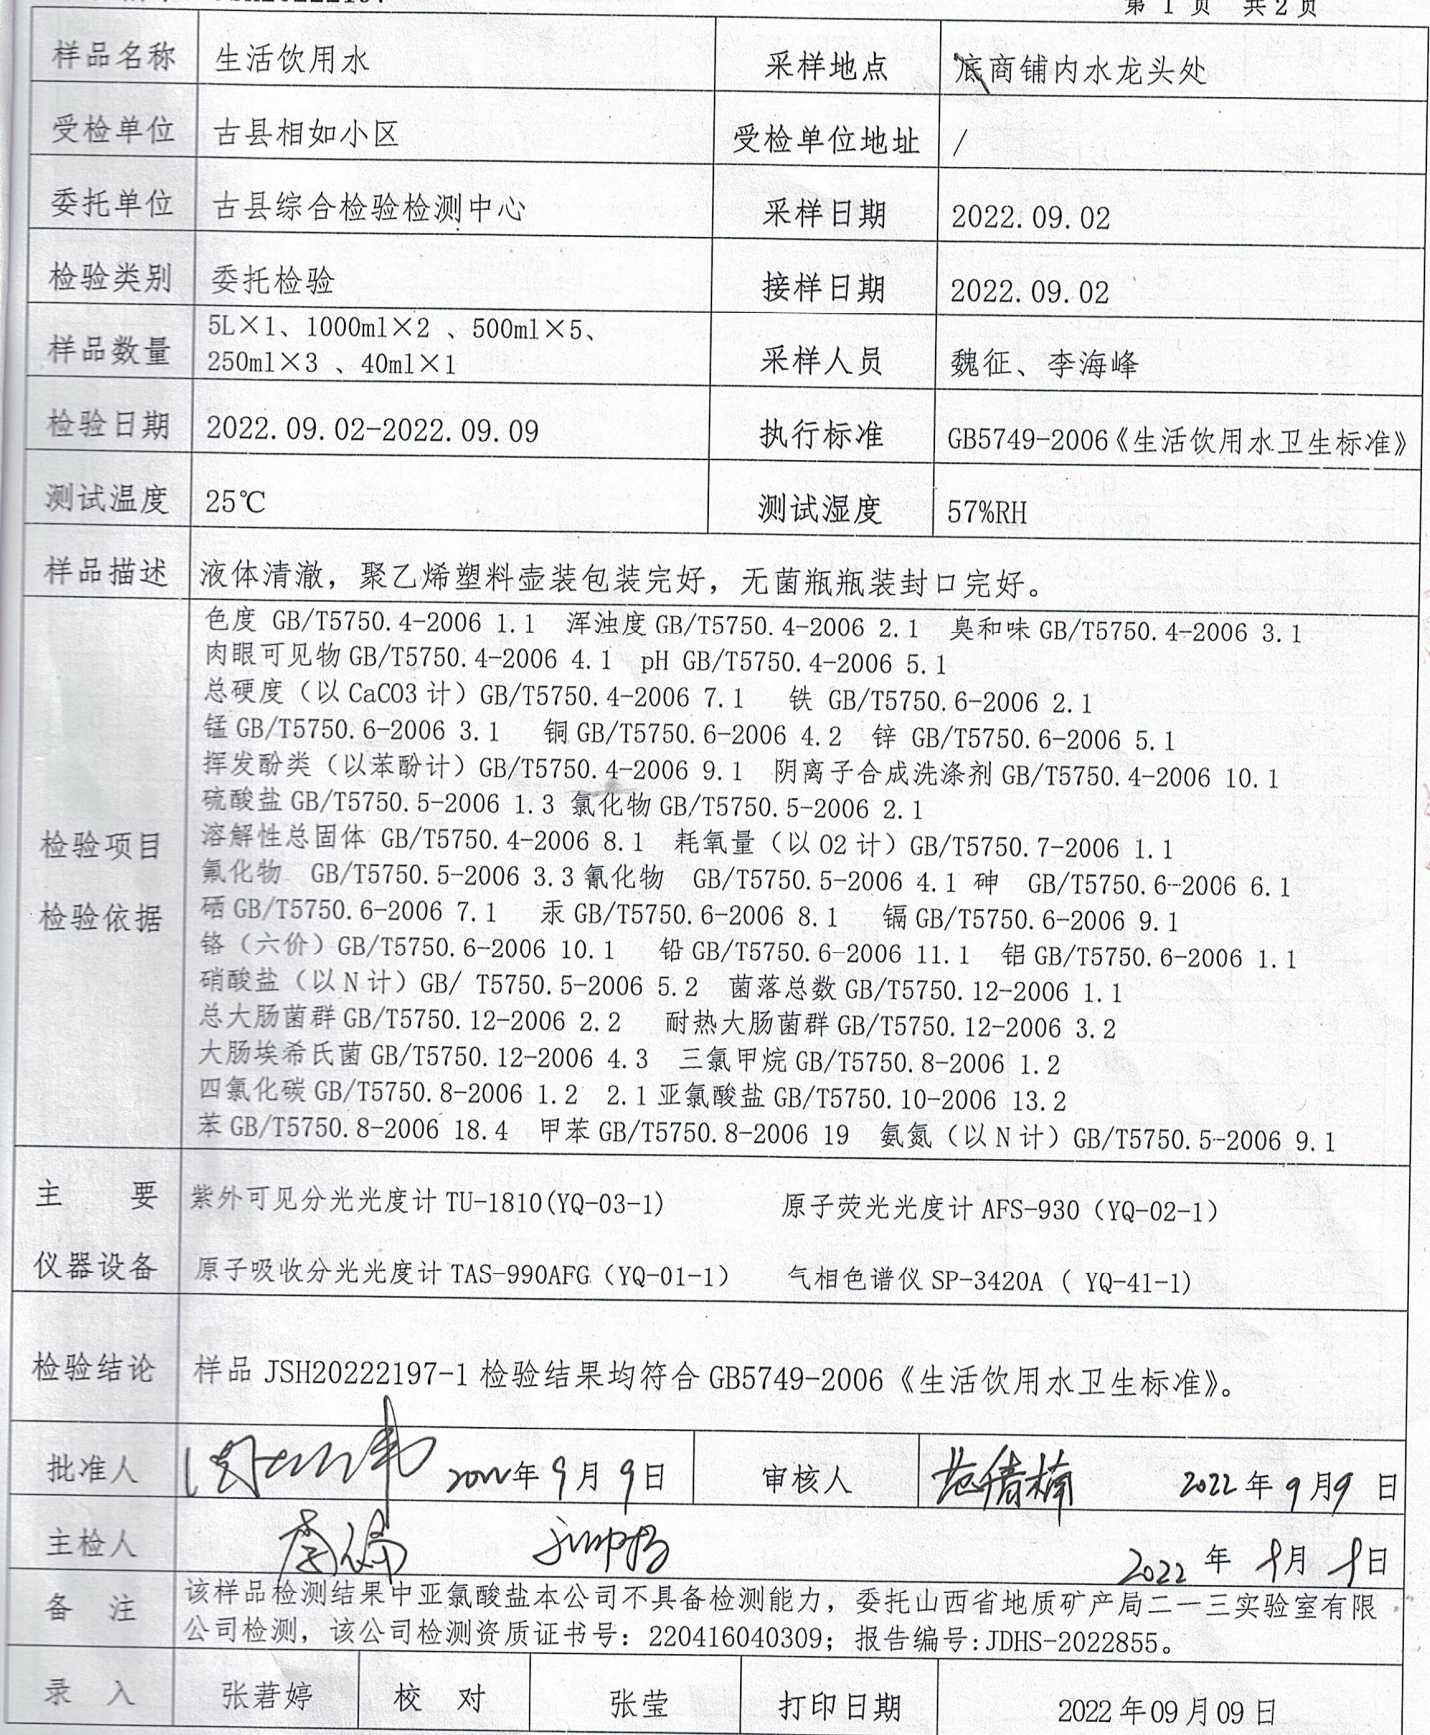 第 1 页 共 2 页
样品名称 生活饮用水 采样地点 底商铺内水龙头处
受检单位 古县相如小区 受检单位地址 /
委托单位 古县综合检验检测中心 采样日期 2022.09.02
检验类别 委托检验 接样日期 2022.09.02
样品数量 5L×1、1000ml×2 、500ml×5、
250ml×3 、40ml×1
采样人员 魏征、李海峰
检验日期 2022.09.02-2022.09.09 执行标准 GB5749-2006《生活饮用水卫生标准》
测试温度 25℃ 测试湿度 57%RH
样品描述 液体清澈，聚乙烯塑料壶装包装完好，无菌瓶瓶装封口完好。
检验项目
检验依据
色度 GB/T5750.4-2006 1.1 浑浊度 GB/T5750.4-2006 2.1 臭和味 GB/T5750.4-2006 3.1
肉眼可见物 GB/T5750.4-2006 4.1 pH GB/T5750.4-2006 5.1
总硬度（以 CaCO3 计）GB/T5750.4-2006 7.1 铁 GB/T5750.6-2006 2.1
锰 GB/T5750.6-2006 3.1 铜 GB/T5750.6-2006 4.2 锌 GB/T5750.6-2006 5.1
挥发酚类（以苯酚计）GB/T5750.4-2006 9.1 阴离子合成洗涤剂 GB/T5750.4-2006 10.1
硫酸盐 GB/T5750.5-2006 1.3 氯化物 GB/T5750.5-2006 2.1
溶解性总固体 GB/T5750.4-2006 8.1 耗氧量（以 O2 计）GB/T5750.7-2006 1.1
氟化物 GB/T5750.5-2006 3.3 氰化物 GB/T5750.5-2006 4.1 砷 GB/T5750.6-2006 6.1
硒 GB/T5750.6-2006 7.1 汞 GB/T5750.6-2006 8.1 镉 GB/T5750.6-2006 9.1
铬（六价）GB/T5750.6-2006 10.1 铅 GB/T5750.6-2006 11.1 铝 GB/T5750.6-2006 1.1
硝酸盐（以 N 计）GB/ T5750.5-2006 5.2 菌落总数 GB/T5750.12-2006 1.1
总大肠菌群 GB/T5750.12-2006 2.2 耐热大肠菌群 GB/T5750.12-2006 3.2
大肠埃希氏菌 GB/T5750.12-2006 4.3 三氯甲烷 GB/T5750.8-2006 1.2
四氯化碳 GB/T5750.8-2006 1.2 2.1 亚氯酸盐 GB/T5750.10-2006 13.2
苯 GB/T5750.8-2006 18.4 甲苯 GB/T5750.8-2006 19 氨氮（以 N 计）GB/T5750.5-2006 9.1
主 要
仪器设备
紫外可见分光光度计 TU-1810(YQ-03-1) 原子荧光光度计 AFS-930（YQ-02-1）
原子吸收分光光度计 TAS-990AFG（YQ-01-1） 气相色谱仪 SP-3420A ( YQ-41-1)
检验结论 样品 JSH20222197-1 检验结果均符合 GB5749-2006《生活饮用水卫生标准》。
批准人 2022年 9月 9日 审核人 范倩楠 2022年 9月9日
主检人 2022 年 9月 9日
备 注 该样品检测结果中亚氯酸盐本公司不具备检测能力，委托山西省地质矿产局二一三实验室有限
公司检测，该公司检测资质证书号：220416040309；报告编号:JDHS-2022855。
录 入 张若婷 校 对 张莹 打印日期 2022 年 09 月 09 日